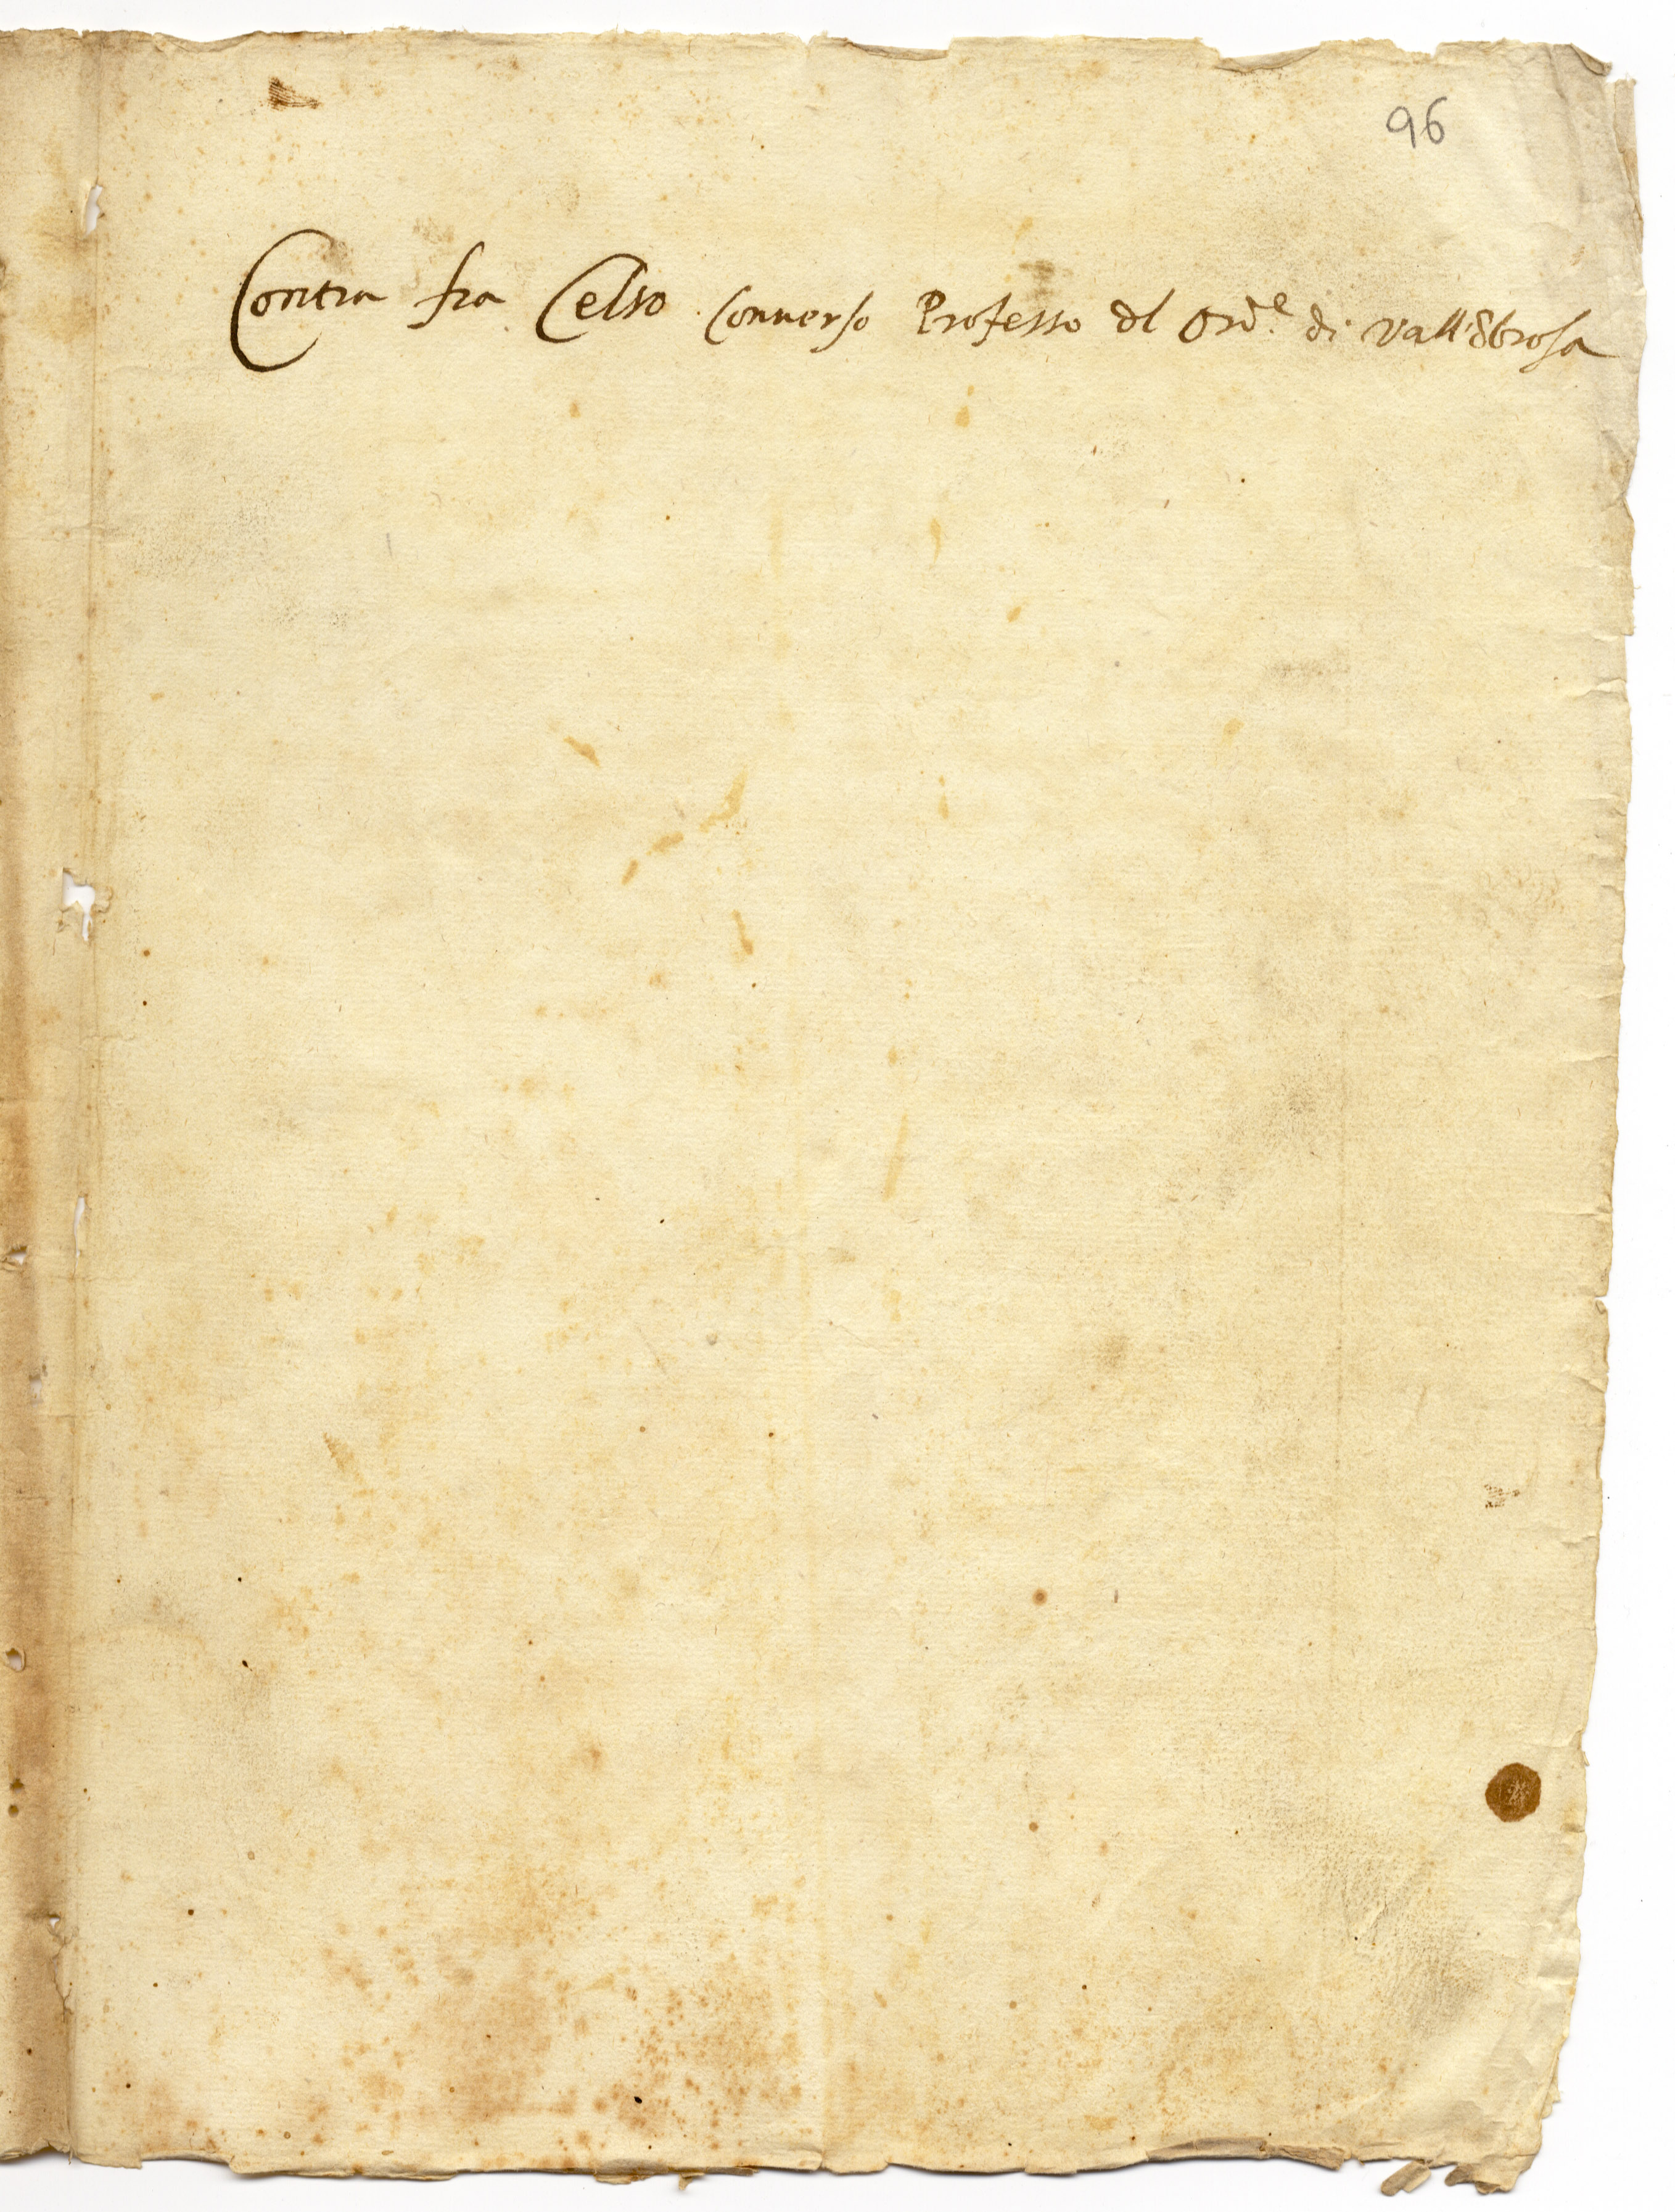 96
Contra fra Celso Conuerso Professo dl Ord.e di Vall'Obrosa